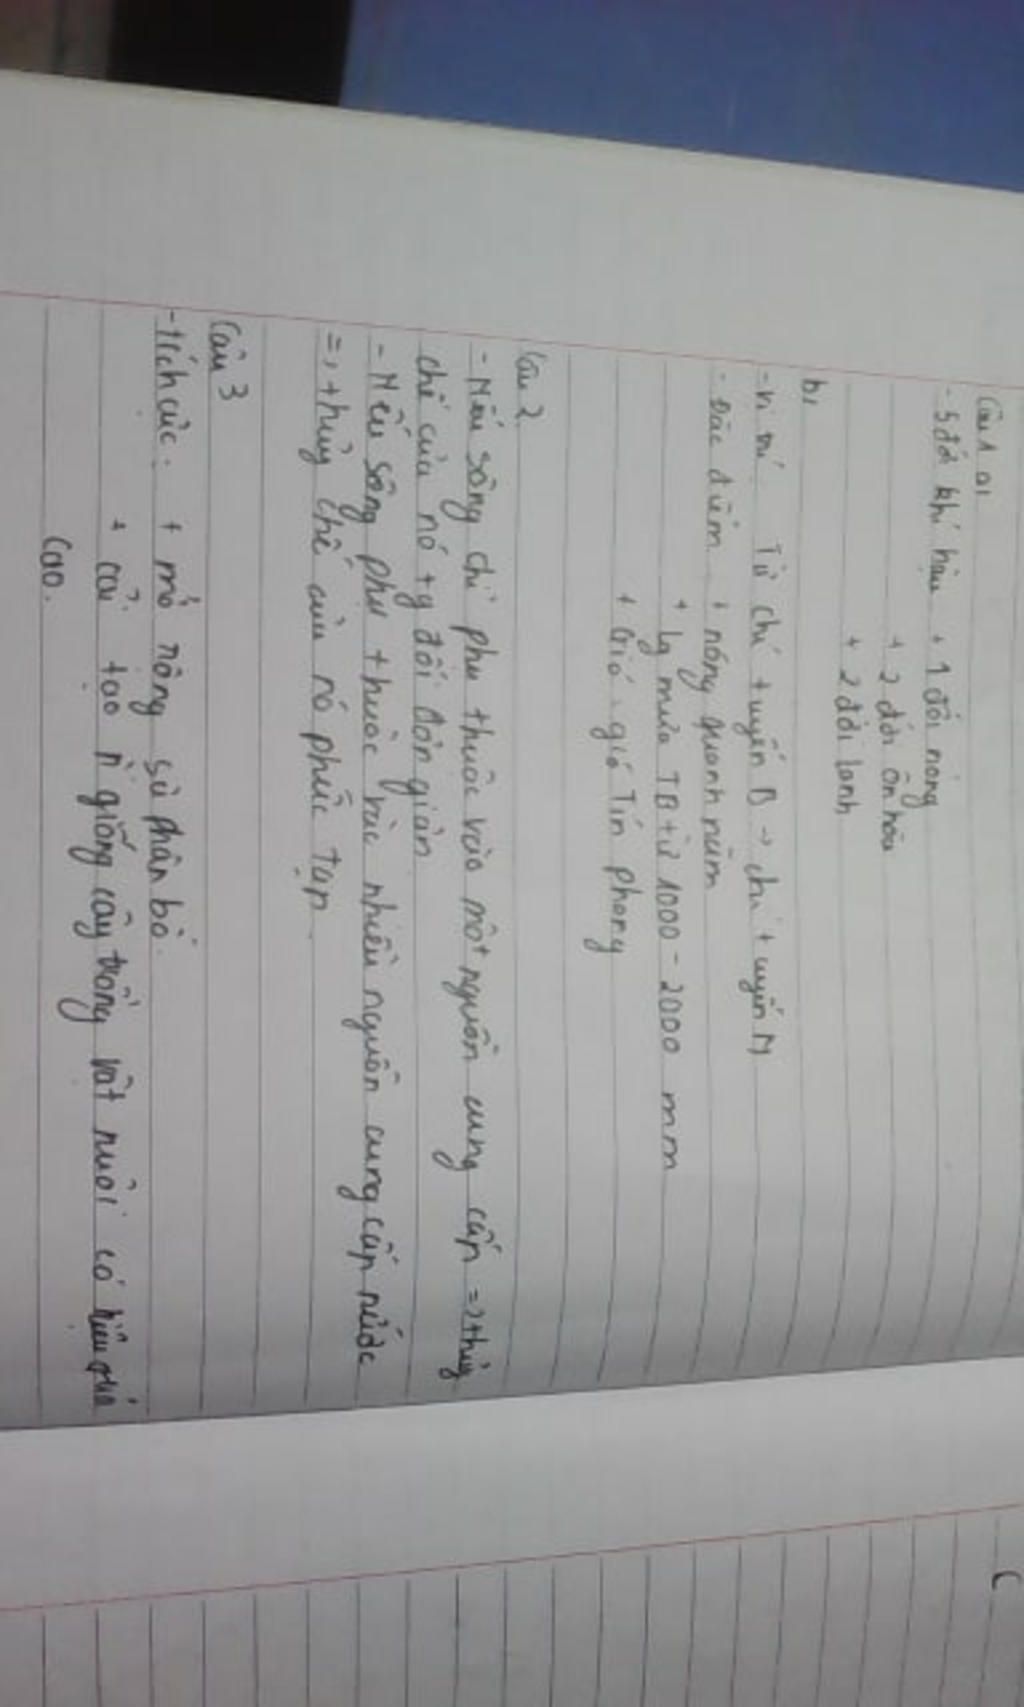 Câu 1 a,
- 5 đới khí hậu + 1 đới nóng
+ 2 đới ôn hòa
+ 2 đới lạnh
b,
- Vị trí. Từ chí tuyến B → chí tuyến N
- Đặc điểm + nóng quanh năm
+ lg mưa TB từ 1000 - 2000 mm
+ Gió: gió Tín phong
Câu 2
- Nếu sông chỉ phụ thuộc vào một nguồn cung cấp => thủy
chế của nó tg đối đơn giản
- Nếu sông phụ thuộc vào nhiều nguồn cung cấp nước
=> thủy chế của nó phức tạp.
Câu 3
- tích cực. + mở rộng sự phân bố.
+ cải tạo n giống cây trồng vật nuôi có hiệu quả
cao.